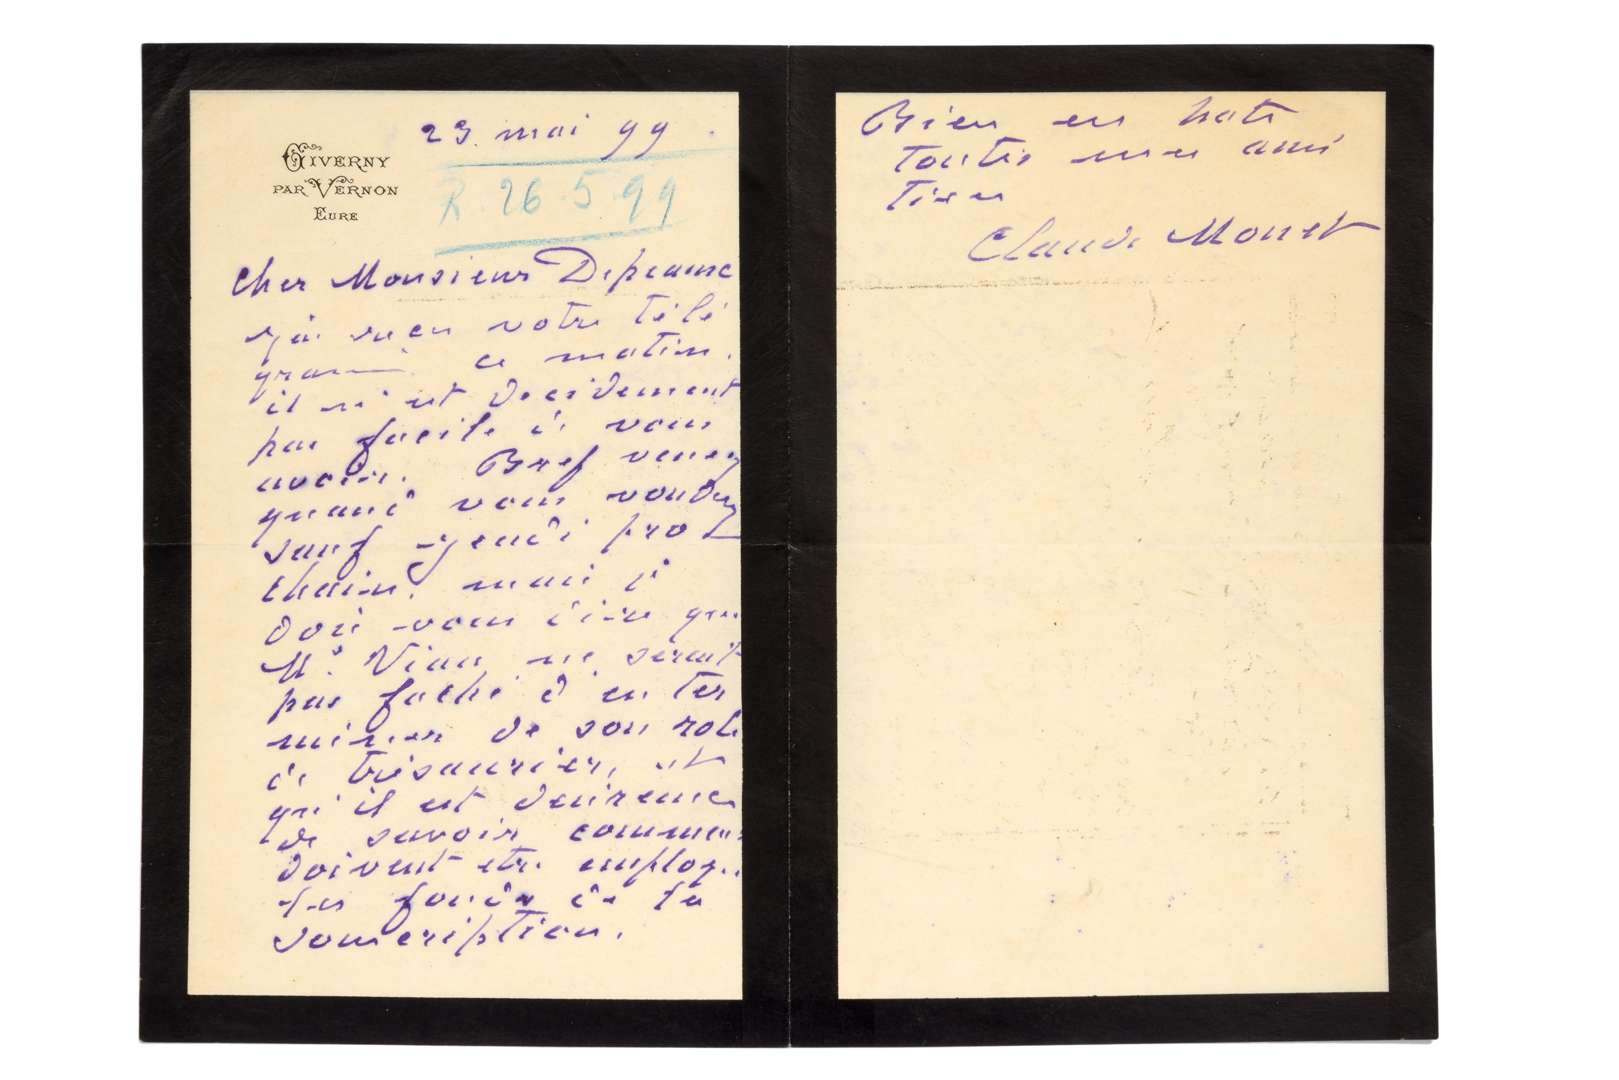 23 mai 99
GIVERNY
PAR VERNON
EURE
R. 26.5.99
Cher Monsieur Depeaux
j'ai reçu votre télé
gramme ce matin.
il n'est decidement
pas facile de vous
avoir. Bref venez
quand vous voudrez
sauf jeudi pro
chain. mais je
dois vous dire que
Mr. Viau ne serait
pas faché d'en ter
miner de son role
de trésaurier, et
qu'il est desireux
de savoir comment
doivent etre employés
les fonds de la
souscription.
Bien en hate
toutes mes ami
tiés
Claude Monet